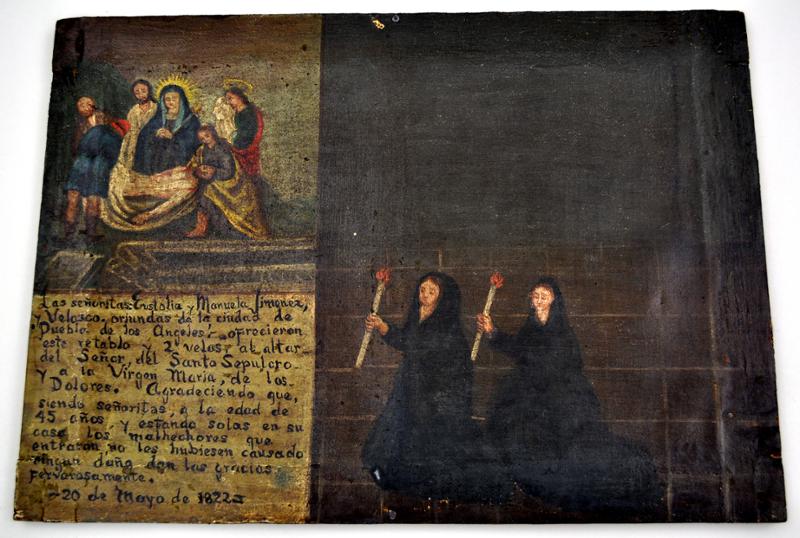 Las señoritas: Eustolia y Manuela Jimenez,
y Velasco, oriundas de la ciudad de
Puebla de los Angeles, ofrecieron
este retablo y 2 velas, al altar
del Señor, del Santo Sepulcro
y a la Virgen Maria, de los
Dolores. Agradeciendo que,
siendo señoritas, a la edad de
45 años, y estando solas en su
casa los malhechores que
entraron, no les hubiesen causado
ningun daño, dan las gracias
fervorosamente.
-20 de Mayo de 1822-